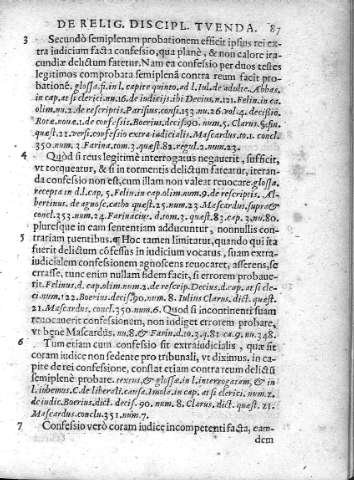 DE RELIG. DISCIPL. TVENDA. 87
3 Secundò semiplenam probationem efficit ipsius rei ex-
tra iudicium facta confessio, qua planè, & non calore ira-
cundiæ delictum fatetur. Nam ea confessio per duos testes
legitimos comprobata semiplenâ contra reum facit pro-
bationē. glossa fi. in l. capite quinto. ad l. Iul. de adulte. Abbas.
in cap. at si clerici. nu. 16. de iudicijs ibi Decius. n. 121. Felin. in ca.
olim. nu. 2. de rescriptis. Parisius. consi. 153. nu. 26. vol. 4. decisio.
Rotæ. noua. 1. de confess. Boerius. decis. 90. num. 5. Clarus.
quæst. 21. versi. confessio extra iudicialis. Mascardus. to. 1. concl.
350. num. 3. Farina. tom. 3. quæst. 82. regul. 2. num. 23.
4 Quòd si reus legitimè interrogatus negauerit, sufficit,
vt torqueatur, & si in tormentis delictum fateatur, iteran-
da confessio non est, cum illam non valeat reuocare glossa.
recepta in d. l. cap. 5. Felin. in cap. olim num. 9. de rescriptis. Al-
bertinus. de agnosc. catho quæst. 25. num. 23 Mascardus. supra &
concl. 353. num. 24. Farinacius. d. tom. 3. quæst. 83. cap. 3. nu. 80.
pluresque in eam sententiam adducuntur, nonnullis con-
5 trariam tuentibus. ¶ Hoc tamen limitatur, quando qui ita
fuerit delictum cōfessus in iudicium vocatus, suam extra-
iudicialem confessionem agnoscens reuocaret, asserens, se
errasse, tunc enim nullam fidem facit, si errorem probaue-
rit. Felinus. d. cap. olim num. 2. de rescrip. Decius. d. cap. at si cle-
ri. num. 122. Boerius. decis. 90. num. 8. Iulius Clarus. dict. quæst.
21. Mascardus. concl. 350. num. 6. Quod si incontinenti suam
reuocauerit confessionem, non indiget errorem probare,
vt bene Mascardus nu. 8. & Farin. d. to. 3. q. 82. ca. 9. nu. 348.
6 Tum etiam cum confessio sit extraiudicialis, quæ sit
coram iudice non sedente pro tribunali, vt diximus, in ca-
pite de rei confessione, constat etiam contra reum delicti
semiplenè probare. textus, & glossa. in l. interrogatam, & in
l. iubemus. C. de liberali. causa. Imola. in cap. at si clerici. num. 2.
de iudic. Boerius. dict. decis. 90. num. 8. Clarus. dict. quæst. 21.
Mascardus. conclu. 351. num. 7.
7 Confessio verò coram iudice incompetenti facta, eam-
dem